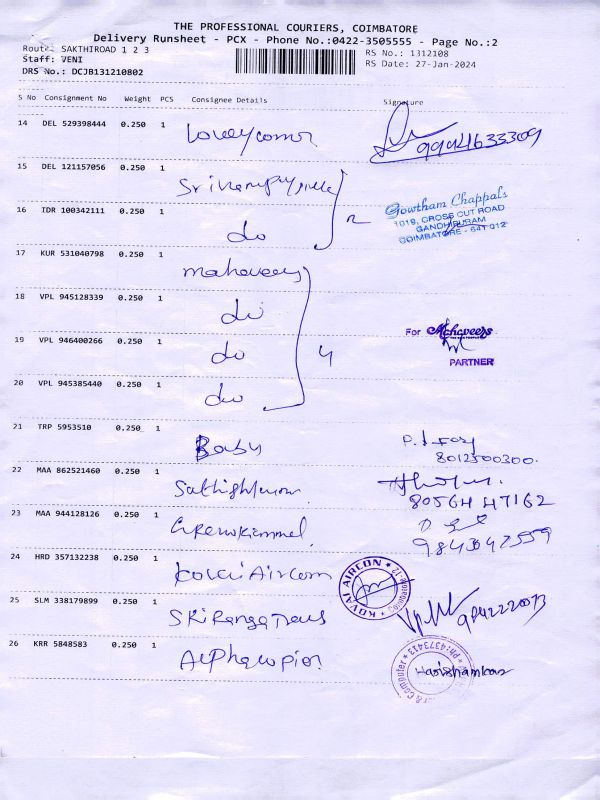 THE PROFESSIONAL COURIERS, COIMBATORE
Delivery Runsheet - PCX - Phone No.:0422-3505555 - Page No.:2
Route: SAKTHIROAD 1 2 3
RS No.: 1312108
Staff: VENI
RS Date: 27-Jan-2024
DRS No.: DCJB131210802
S No Consignment No Weight PCS Consignee Details Signature
14 DEL 529398444 0.250 1
9994633309
15 DEL 121157056 0.250 1
Gowtham Chappals
1019, CROSS CUT ROAD
GANDHIPURAM
COIMBATORE - 641 012
16 TDR 100342111 0.250 1 do
2
17 KUR 531040798 0.250 1 mahaveers
18 VPL 945128339 0.250 1 do
For Mahaveers
PARTNER
19 VPL 946400266 0.250 1 do
4
20 VPL 945385440 0.250 1 do
21 TRP 5953510 0.250 1 Baby
8012500300.
22 MAA 862521460 0.250 1
80564 47162
23 MAA 944128126 0.250 1
9843042559
24 HRD 357132238 0.250 1 Kovai Aircon
KOVAI AIRCON
25 SLM 338179899 0.250 1
9842222073
26 KRR 5848583 0.250 1
& Computer
Ph:4373413
Harishankar